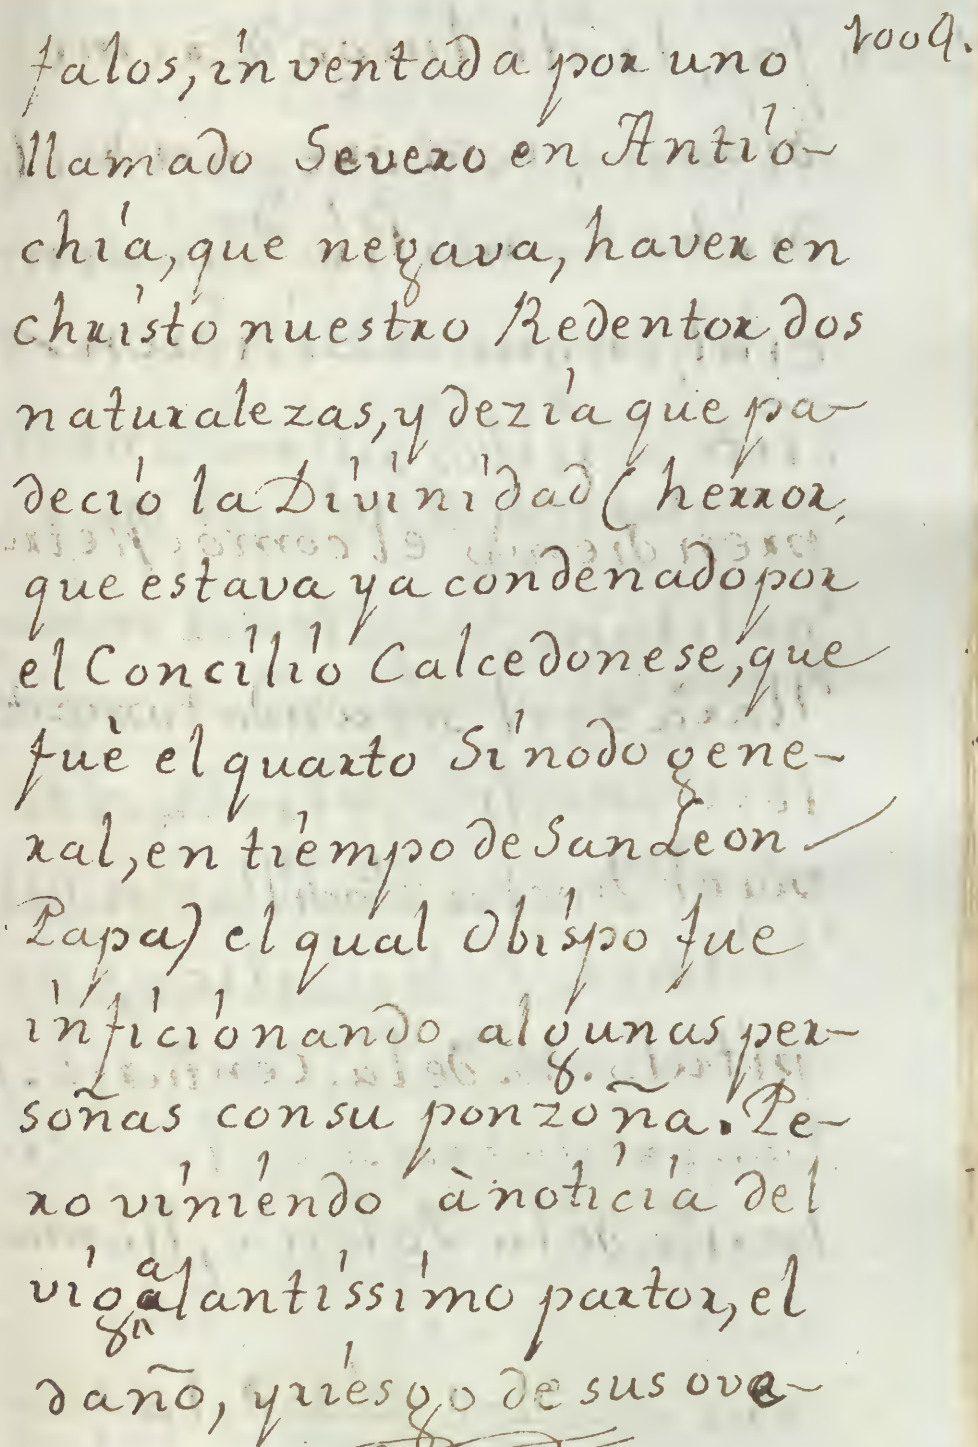 1009.
falos, inventada por uno
llamado Severo en Antio-
chia, que negava, haver en
christo nuestro Redentor dos
naturalezas, y dezia que pa-
decio la Divinidad ( herror,
que estava ya condenado por
el Concilio Calcedonese, que
fuè el quarto Sinodo gene-
ral, en tiempo de San Leon
Papa) el qual Obispo fue
inficionando algunas per-
soñas con su ponzoña. Pe-
ro viniendo à noticia del
vigalantissimo partor, el
daño, y riesgo de sus ove-